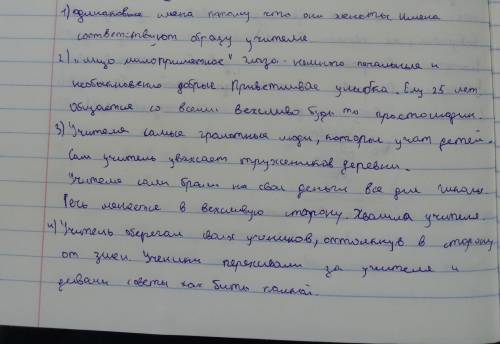 1) одинаковые имена потому что они женаты. Имена
соответствуют образу учителя
2) "лицо малоприметное" глаза - немного печальные и
необыкновенно добрые. Приветливая улыбка. Ему 25 лет
общается со всеми вежливо будь то простолюдин.
3) Учителя самые грамотные люди, которые учат детей.
Сам учитель уважает тружеников деревни.
Учителя сами брали на свои деньги все для школы.
Речь меняется в вежливую сторону. Хвалила учителя.
4) Учитель оберегал своих учеников, оттолкнув в сторону
от змеи. Ученики переживали за учителя и
давали советы как бить палкой.